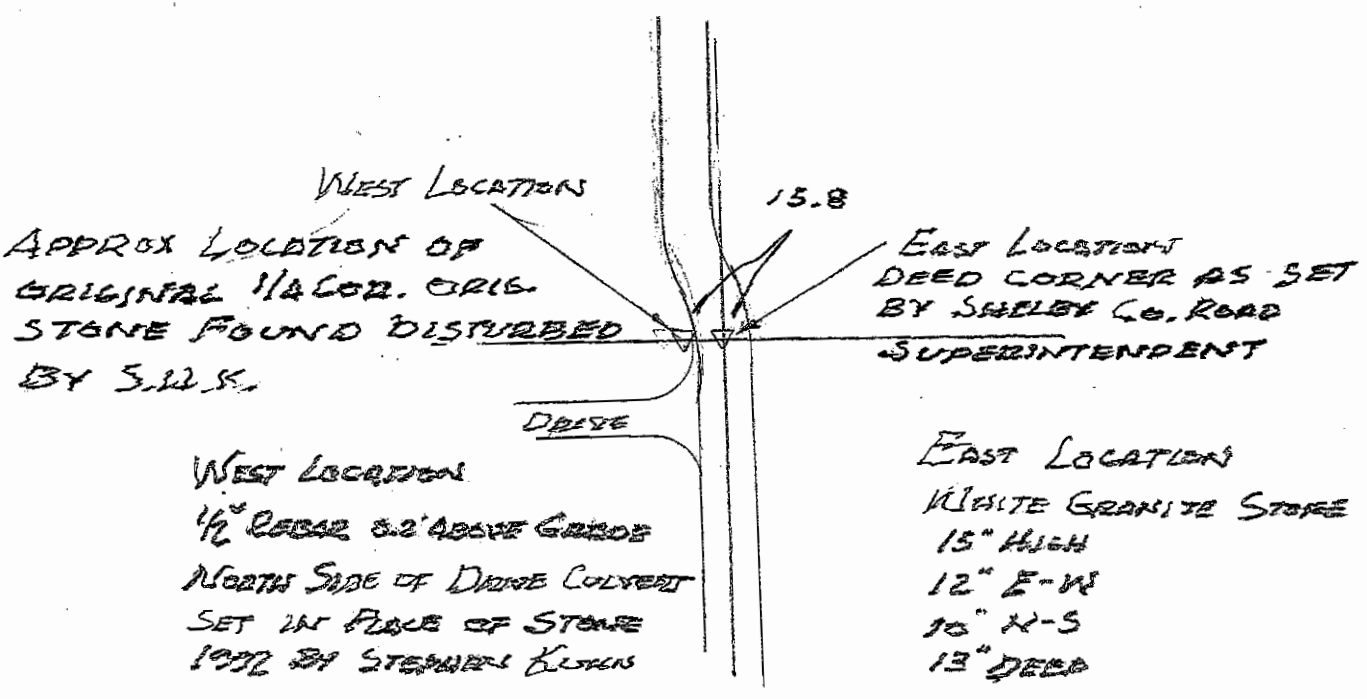 WEST LOCATION
15.8
APPROX LOCATION OF
ORIGINAL 1/4 COR. ORIG.
STONE FOUND DISTURBED
BY
EAST LOCATION
DEED CORNER AS SET
BY SHELBY CO. ROAD
SUPERINTENDENT
DRIVE
WEST LOCATION
1/2" REBAR 0.2' ABOVE GRADE
NORTH SIDE OF DRIVE CULVERT
SET IN PLACE OF STONE
BY STEPHEN
EAST LOCATION
WHITE GRANITE STONE
15" HIGH
12" E-W
10" N-S
13" DEEP